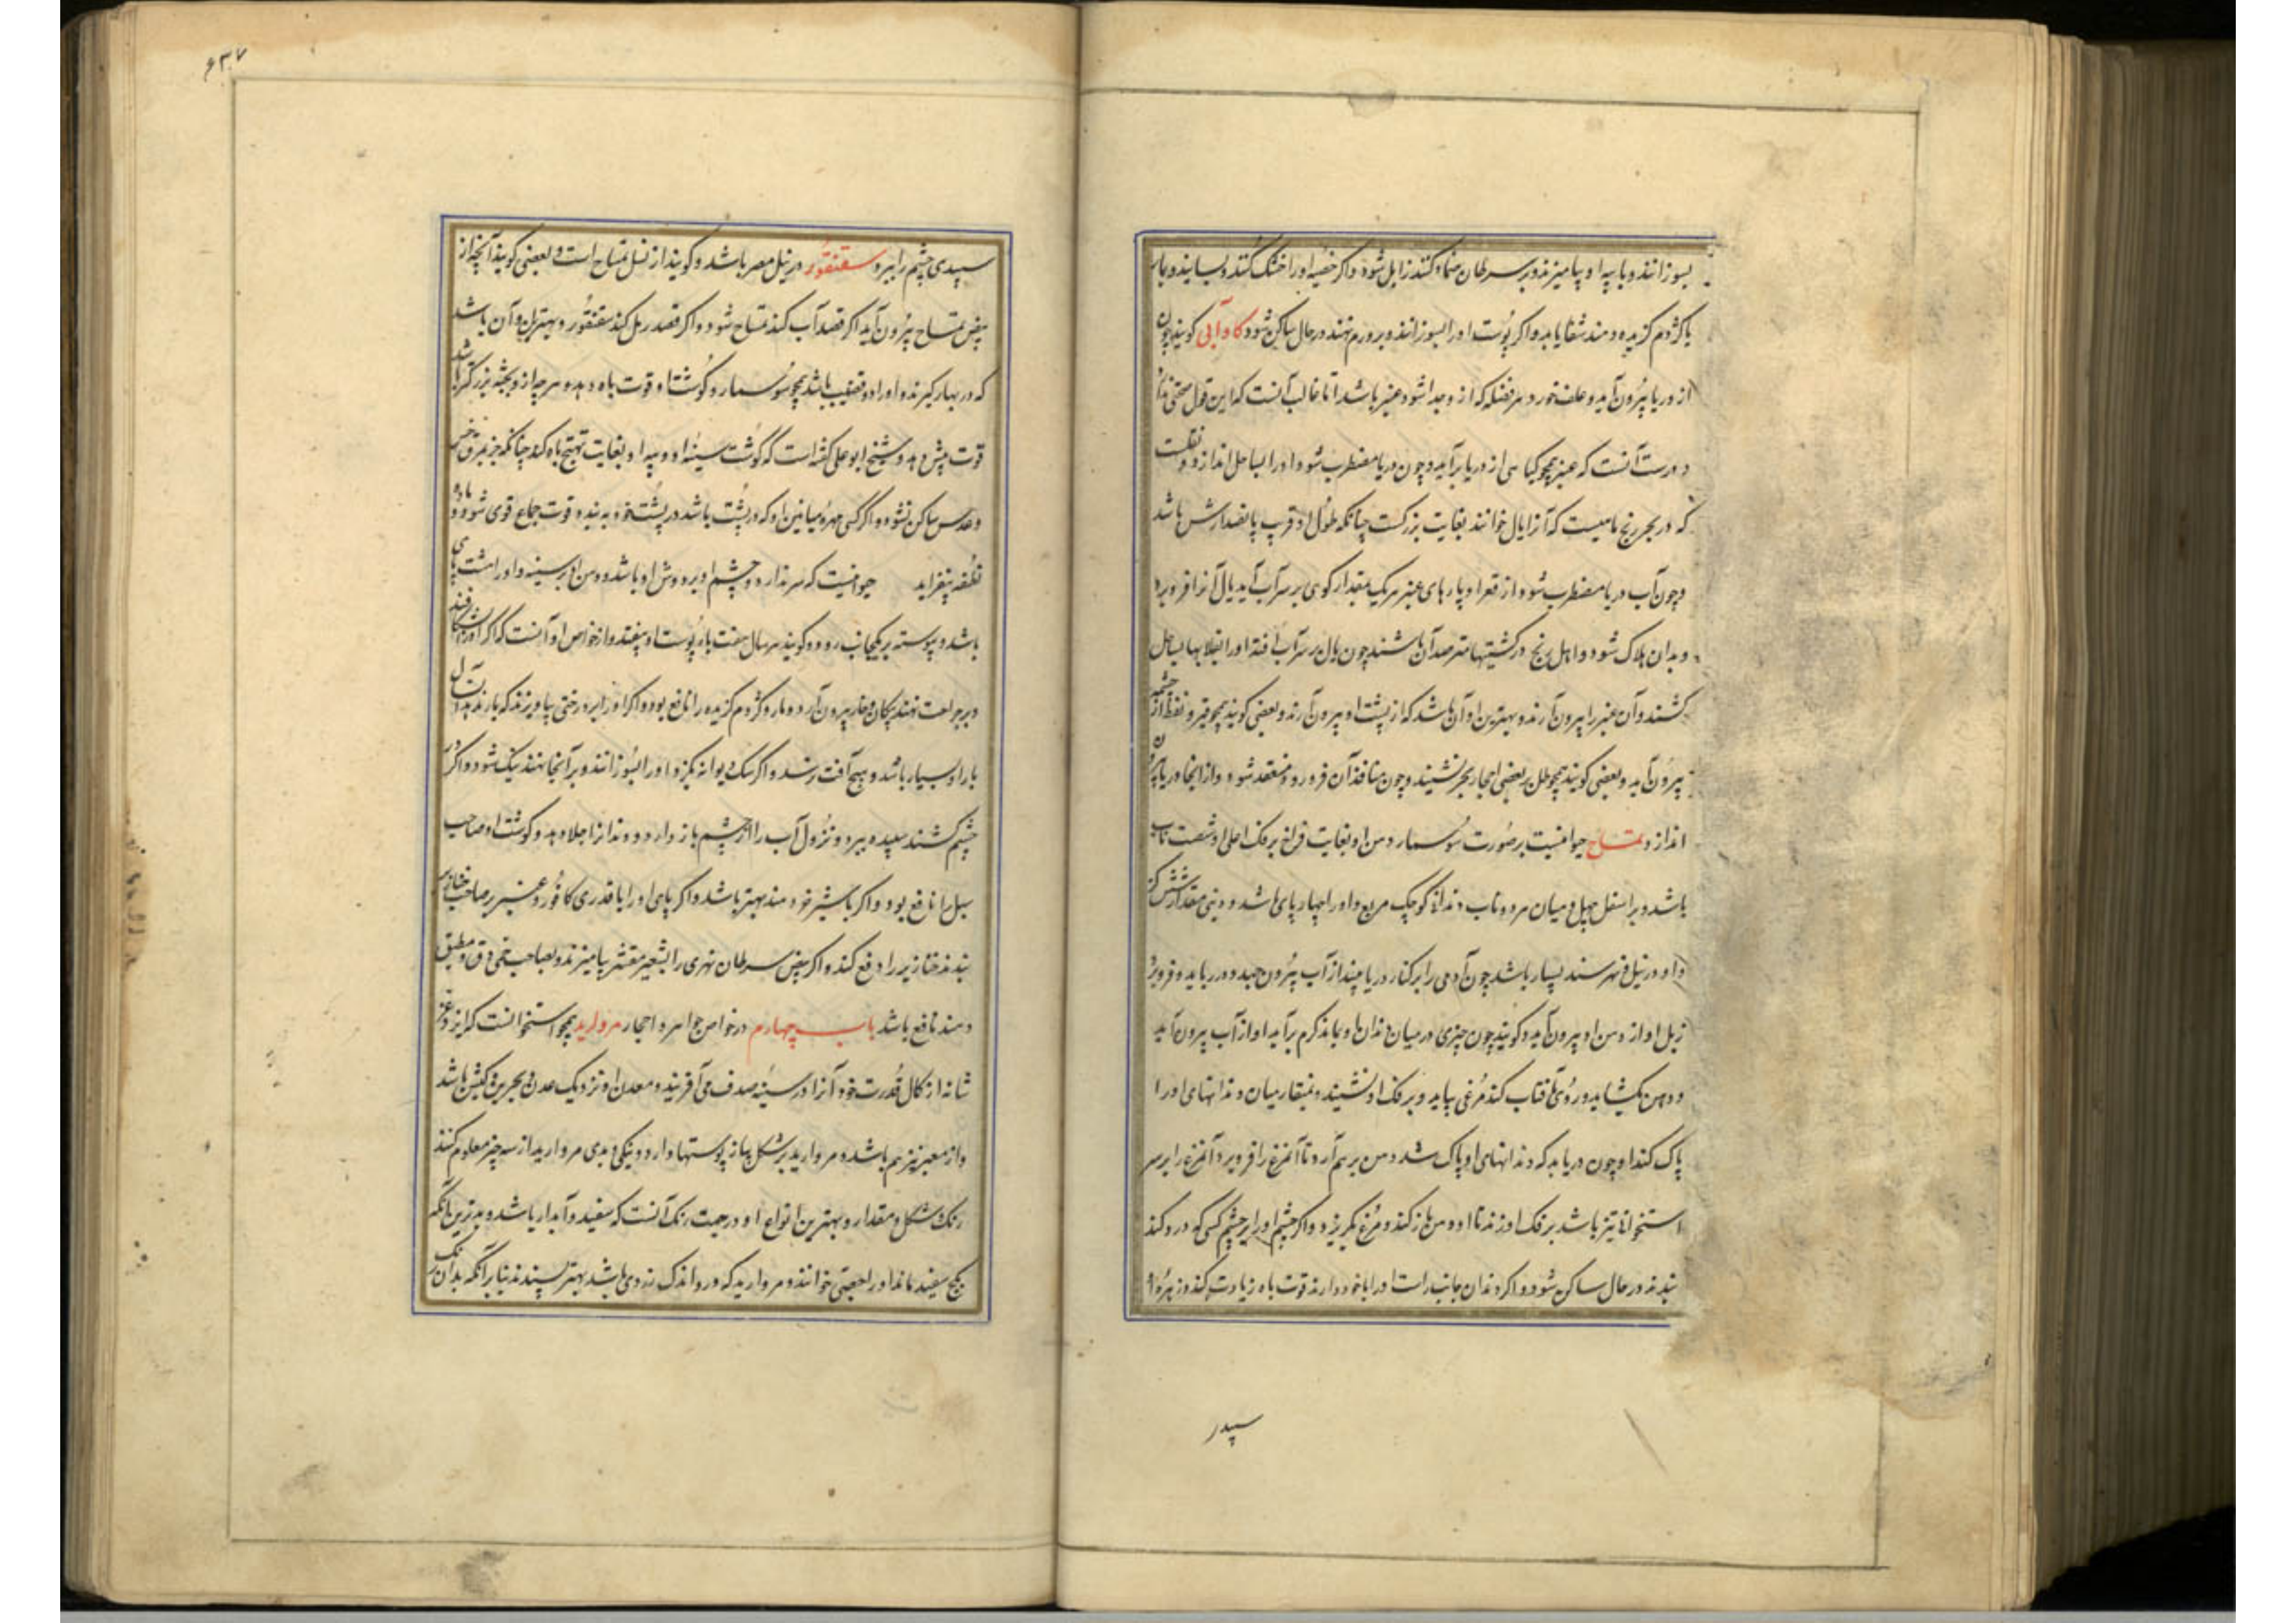 بسوزانند و با پیه او بیامیزند و بر سرطان ضماد کنند زایل شود و اگر خصیه او را خشک کنند و بسایند و بمار
یا کژدم گزیده دهند شفا یابد و اگر پوست او را بسوزانند و بر ورم نهند در حال ساکن شود کاو آبی گویند چون
از دریا بیرون آید و علف خورد هر فضله که از و جدا شود عنبر باشد اما غالب آنست که این قول صحتی ندارد
و درست آنست که عنبر همچو گیاهی از دریا برآید و چون دریا مضطرب شود او را بساحل اندازد و نقلست
که در بحر زنج ماهیست که آنرا یال خوانند بغایت بزرکست چنانکه طول او قریب پانصد ارش باشد
و چون آب دریا مضطرب شود از قعر او پارهای عنبر هر یک بمقدار کوهی بر سر آب آید یال آنرا فرو برد
و بدان هلاک شود و اهل زنج در کشتیها مترصد آن باشند چون یال بر سر آب افتد او را بقلابها بساحل
کشند و آن عنبر را بیرون آرند و بهترین او آن باشد که از پشت او بیرون آرند و بعضی گویند همچو قیر و نفط از چشمه
بیرون آید و بعضی گویند همچو طل بر بعضی احجار بحر نشیند و چون بمنافذ آن فرو رود منعقد شود و از آنجا دریا بیرون
اندازد تمساح حیوانیست بر صورت سوسمار دهن او بغایت فراخ بر فک اعلی او شصت ناب
باشد و بر اسفل چهل و میان هر دو ناب دندانی کوچک مربع و او را چهار پای باشد و دنبی مقدار شش گز
و او در نیل و نهر سند بسیار باشد چون آدمی را بر کنار دریا بیند از آب بیرون جهد و در رباید و فرو برد
زبل او از دهن او بیرون آید و گویند چون چیزی در میان دندانها او بماند کرم برآید او از آب بیرون آید
و دهن بگشاید و روی بآفتاب کند مرغی بیاید و بر فک او نشیند و بمنقار میان دندانهای او را
پاک کند او چون دریابد که دندانهای او پاک شد دهن بر هم آرد تا آنمرغ را فرو برد آنمرغ را بر سر
استخوانی تیز باشد بر فک او زند تا او دهن باز کند و مرغ بگریزد و اگر چشم او را بر چشم کسی که درد کند
بندند در حال ساکن شود و اگر دندان جانب راست او را با خود دارند قوت باه زیادت کند و زهره او
سپیدی
۶۳۷
سپیدی چشم را ببرد سقنقور در نیل مصر باشد و گویند از نسل تمساح است و بعضی گویند آنچه از
بیض تمساح بیرون آید اگر قصد آب کند تمساح شود و اگر قصد رمل کند سقنقور و بهترین او آن باشد
که در بهار گیرند و او را دو قضیب باشد همچو سوسمار و گوشت او قوت باه دهد و هر چه از و بجثه بزرگتر باشد
قوت بیش دهد و شیخ ابو علی گفته است که گوشت سینه او و پیه او بغایت تهییج باه کند چنانکه جز بمرق خس
و عدس ساکن نشود و اگر کسی مهره میانین او که در پشت باشد در پشت خود بندد قوت جماع قوی شود و ماده
نطفه بیفزاید حیوانیست که سر ندارد و چشم او بر دوش او باشد و دهن او بر سینه و او را هشت پای
باشد و پیوسته بر یکجانب رود و گویند هر سال هفت بار پوست او بیفتد و از خواص او آنست که اگر او را بشکافند
و بر جراحت نهند پیکان و خار بیرون آرد و مار و کژدم گزیده را نافع بود و اگر او را بر درختی بیاویزند که بار ندارد آن سال
بار او بسیار باشد و هیچ آفت نرسد و اگر سک دیوانه بگزد او را بسوزانند و بر آنجا نهند نیک شود و اگر در
چشم کشند سپیده ببرد و نزول آب را از چشم باز دارد و دندانرا جلا دهد و گوشت او صاحب
سل را نافع بود و اگر با شیر خر دهند بهتر باشد و اگر پای او را با قدری کافور و عنبر بر صاحب خنازیر
بندند خنازیر را دفع کند و اگر بیض سرطان نهری را بشعیر مقشر بیامیزند و بصاحب حمی دق و مطبق
دهند نافع باشد باب چهارم در خواص جواهر و احجار مروارید همچو استخوانست که ایزد عز
شانه از کمال قدرت خود آنرا در سینه صدف می‌آفریند و معدن او نزدیک عدن و بحرین و کیش باشد
و از معبر نیز هم باشد و مروارید بر شکل پیاز پوستها دارد و نیکی و بدی مروارید از سه چیز معلوم کنند
رنک و شکل و مقدار و بهترین انواع او در جهت رنک آنست که سفید و آبدار باشد و بدترین آنکه
بگچ سفید ماند او را جصی خوانند و مروارید که در و اندک زردی باشد بهتر پسندند بنا بر آنکه بدان رنک